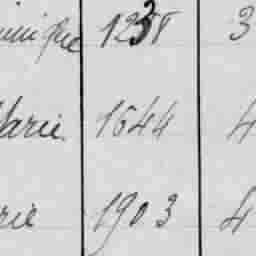 inique 1238 3
Marie 1644 4
rie 1903 4